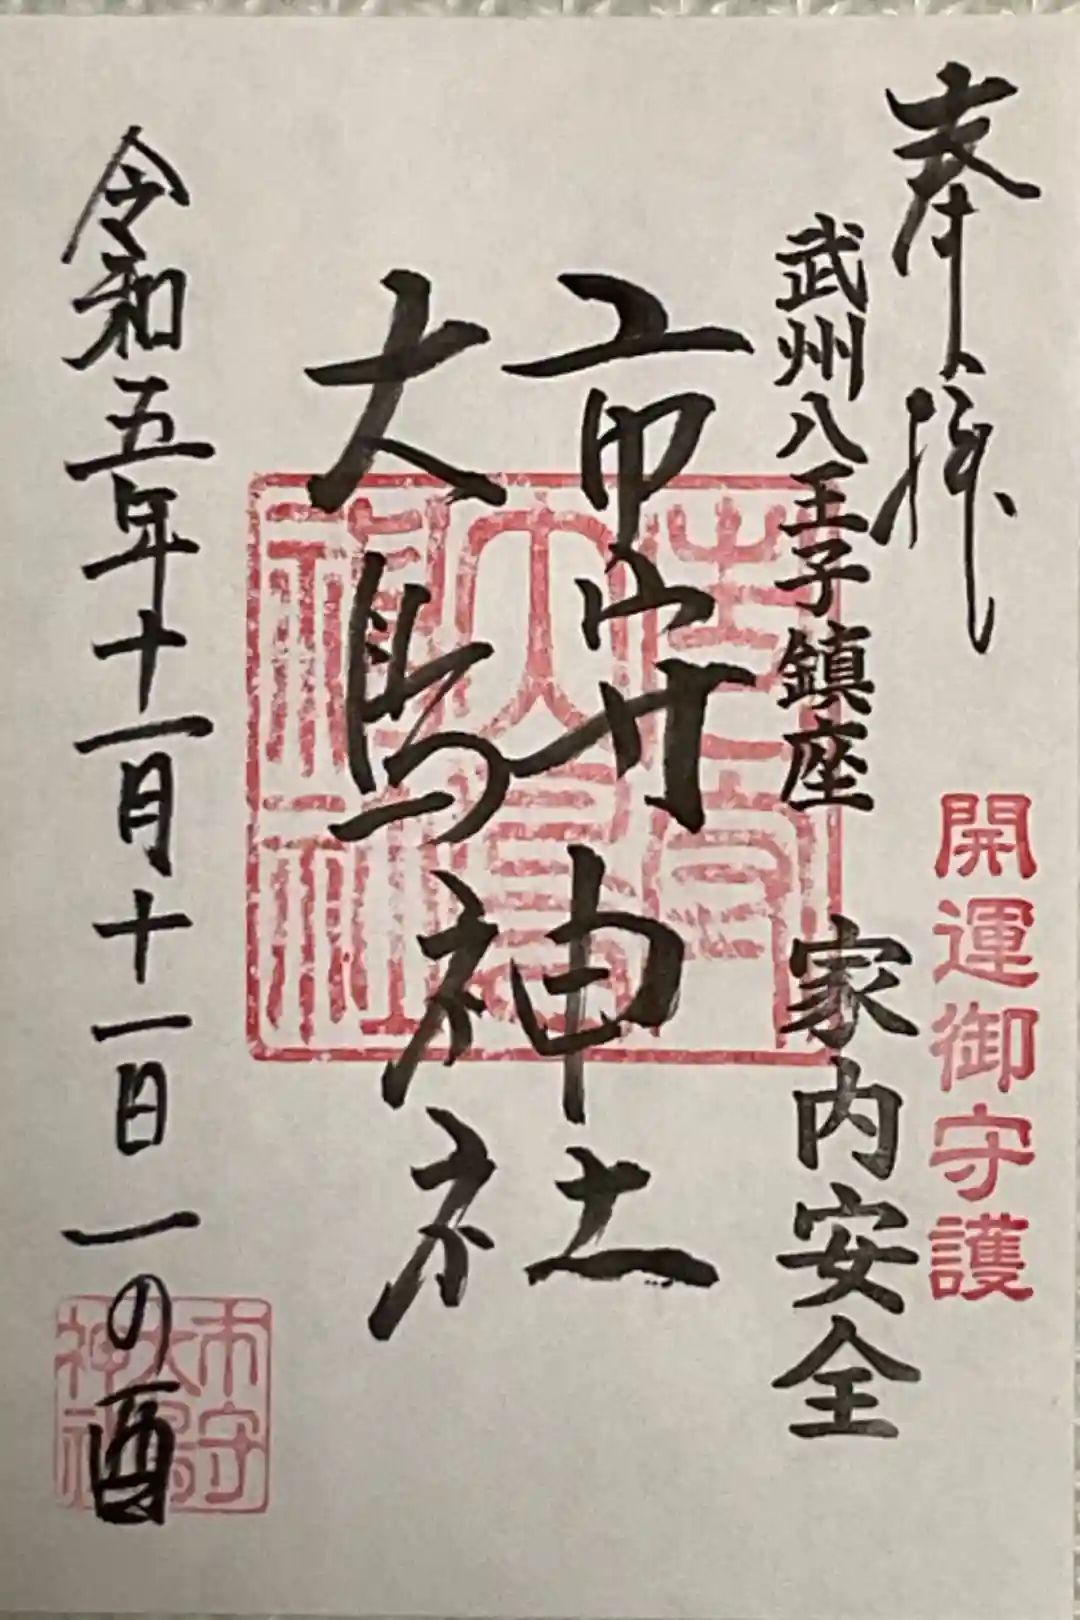 奉拝
開運御守護
武州八王子鎮座
家内安全
市守
大鳥
神社
令和五年十一月十一日
一の酉
市守
大鳥
神社